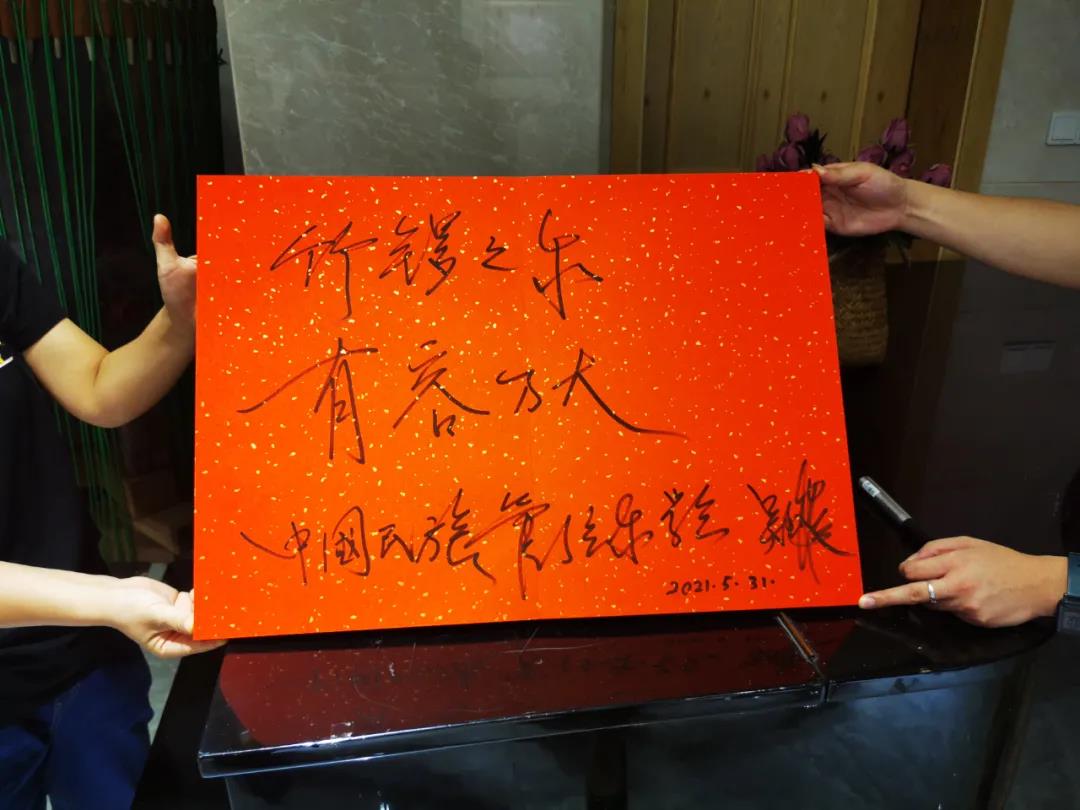 竹之乐
有容乃大
中國民族管弦乐学会 吴
2021.5.31.